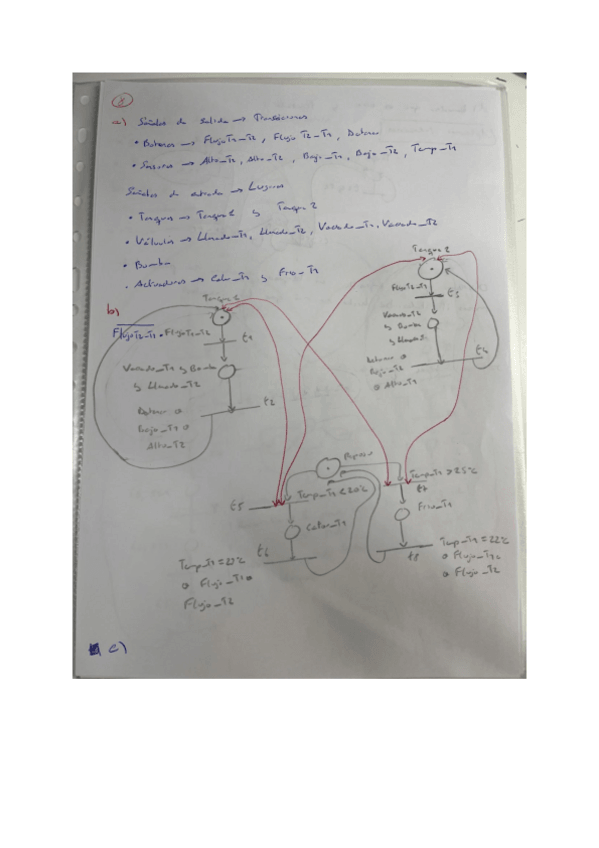 8
a) Señales de salida → Transiciones
• Botones → FlujoT1-T2, Flujo T2-T1, Detener
• Sensores → Alto_T1, Alto_T2, Bajo_T1, Bajo_T2, Temp_T1
Señales de entrada → Lugares
• Tanques → Tanque 1 y Tanque 2
• Válvulas → Llenado_T1, Llenado_T2, Vaciado_T1, Vaciado_T2
• Bomba
• Actuadores → Calor_T1 y Frio_T1
b)
Tanque 1
FlujoT2-T1 • FlujoT1-T2
t1
Vaciado_T1 y Bomba
y Llenado_T2
t2
Detener o
Bajo_T1 o
Alto_T2
Tanque 2
FlujoT2-T1
t3
Vaciado_T2
y Bomba
y Llenado
t4
Detener o
Bajo_T2
o Alto_T1
Reposo
t5
Temp_T1 < 20ºC
Temp_T1 > 25ºC
t7
Calor_T1
Frio_T1
t6
t8
Temp_T1 = 22ºC
o Flujo_T1 o
Flujo_T2
Temp_T1 = 22ºC
o Flujo_T1 o
o Flujo_T2
c)